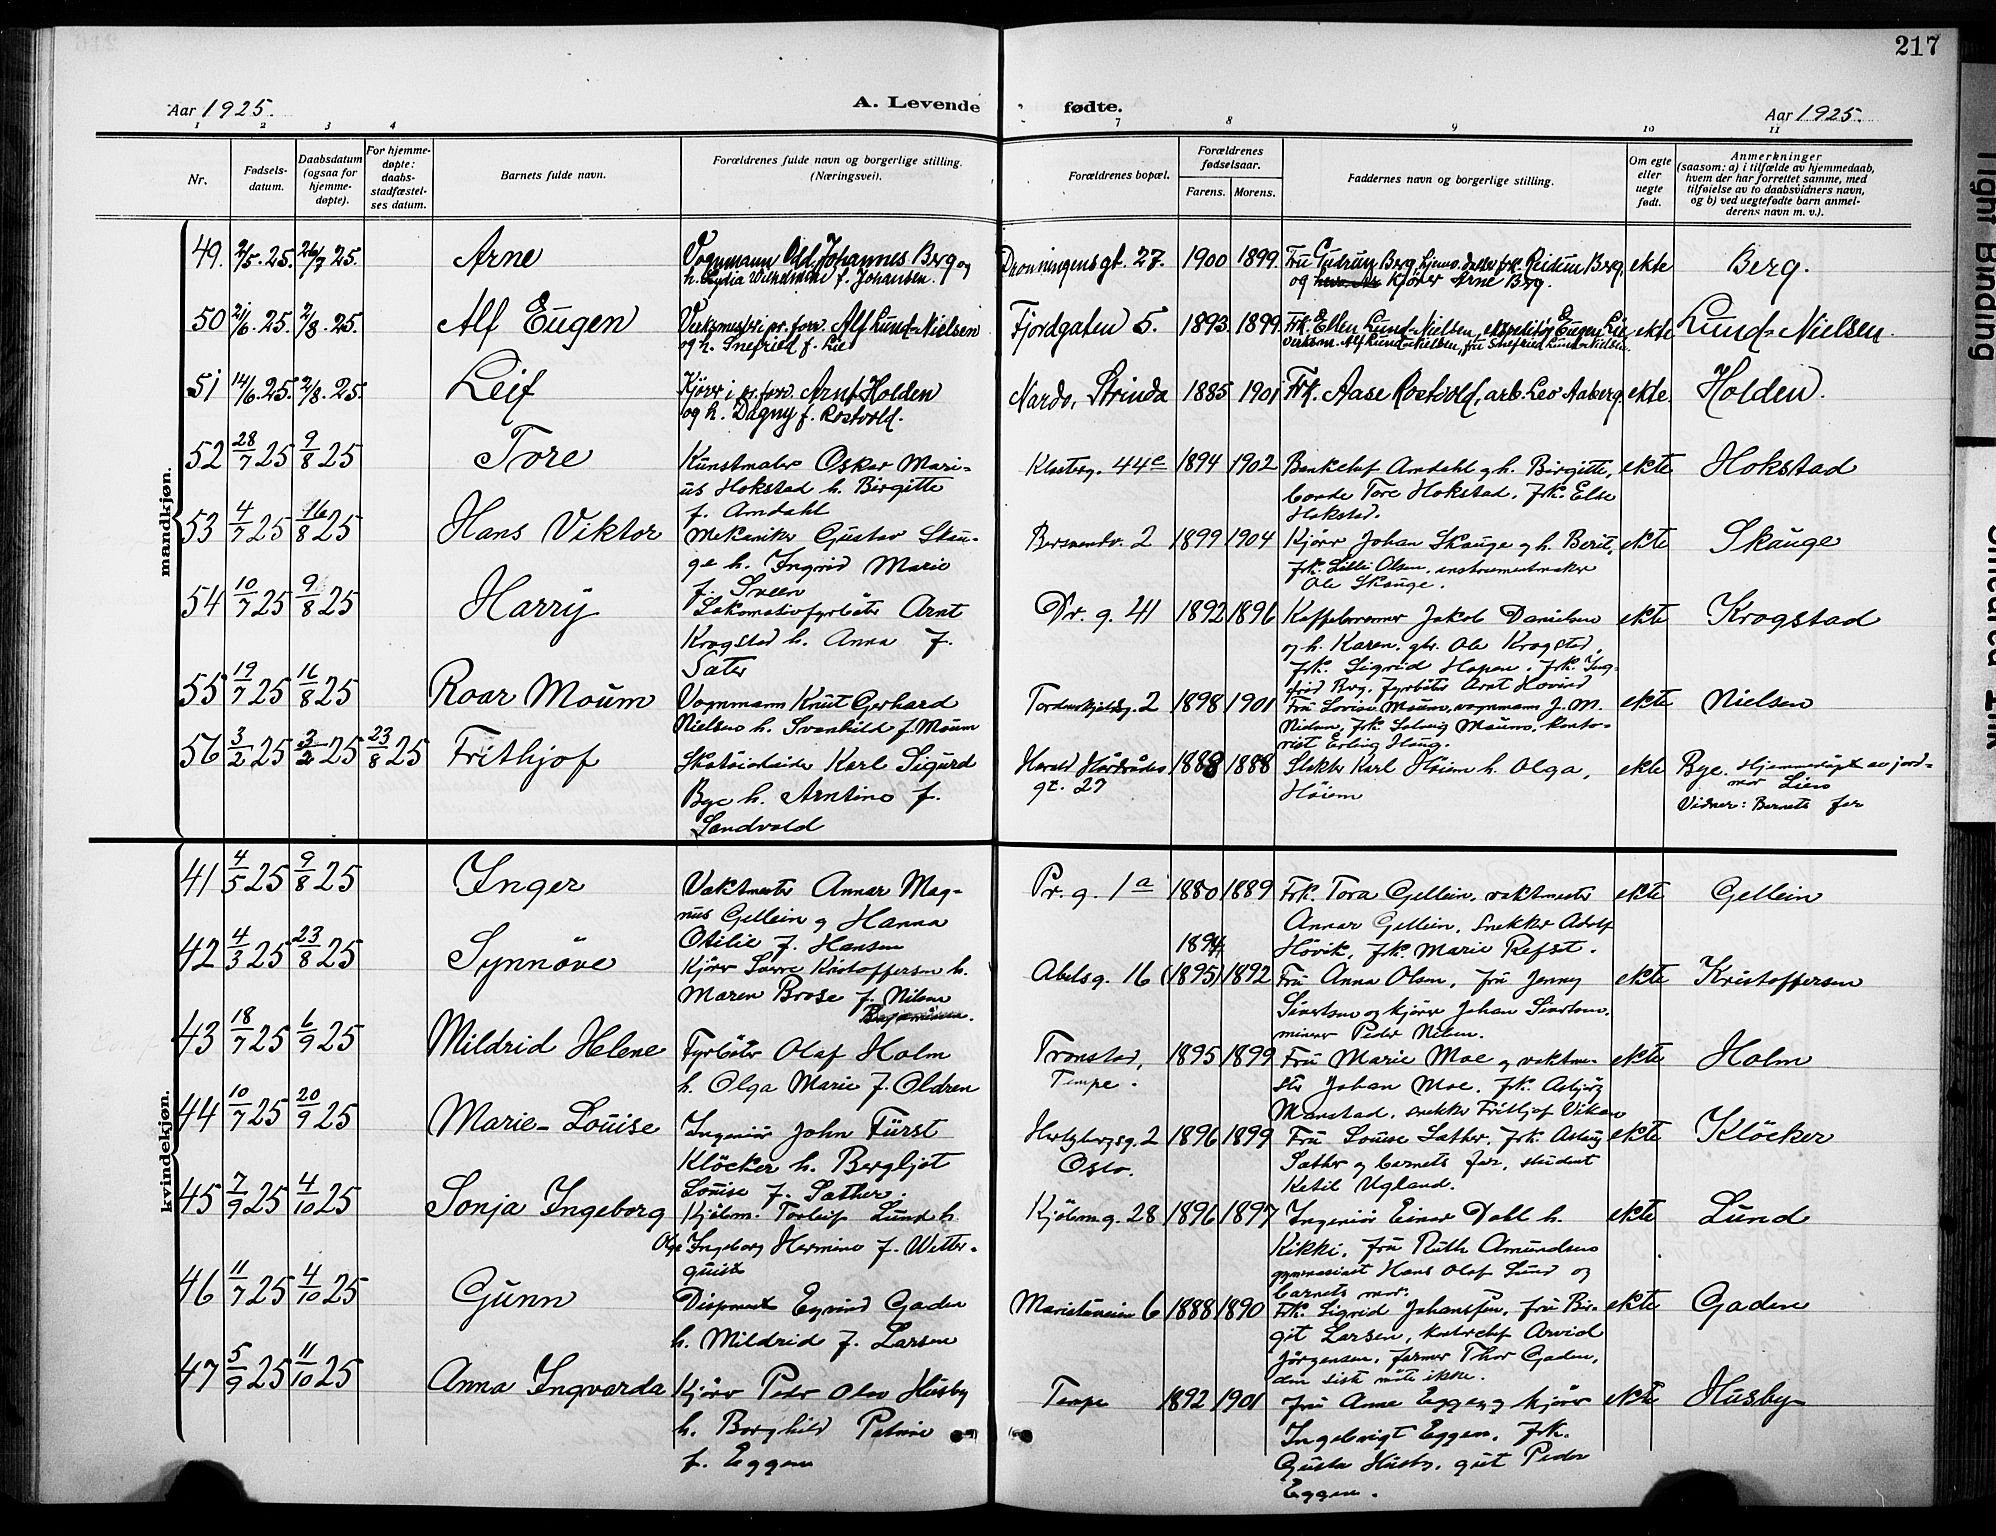 217
Aar 1925.
A. Levende fødte.
Aar 1925.
1 2 3 4 7 8 9 10 11
Nr.
Fødsels-
datum.
Daabsdatum
(ogsaa for
hjemme-
døpte).
For hjemme-
døpte:
daabs-
stadfæstel-
ses datum.
Barnets fulde navn.
Forældrenes fulde navn og borgerlige stilling.
(Næringsvei).
Forældrenes bopæl.
Forældrenes
fødselsaar.
Farens. Morens.
Faddernes navn og borgerlige stilling.
Om egte
eller
uegte
født.
Anmerkninger
(saasom: a) i tilfælde av hjemmedaab,
hvem der har forrettet samme, med
tilføielse av to daabsvidners navn,
og b) ved uegtefødte barn anmel-
derens navn m. v.).
mandkjøn.
49. 2/5. 25. 26/7 25. Arne
Vognmann Odd Johannes Berg og
h. Lydia f. Johansen.
Dronningensgt. 27. 1900 1899
Fru Gudrun Berg, frk. Reidun Berg
og kjører Arne Berg.
ekte Berg.
50 21/6. 25. 2/8. 25. Alf Eugen
Alf Lund-Nielsen
og h. Snefried f. Lie
Fjordgaten 5. 1893 1899
Frk. Ellen Lund-Nielsen, ekspeditør Eugen Lie
Alf Lund-Nielsen, fru Snefried Lund-Nielsen.
ekte Lund-Nielsen.
51 14/6. 25. 2/8. 25. Leif
Kjører i pr. forr. Arnt Holden
og h. Dagny f. Rostvold.
Nardo, Strinda 1885 1901
Frk. Aase Rostvold, arb. Leo Aaberg.
ekte. Holden.
52 28/7 25 9/8 25 Tore
Kunstmaler Oskar Mari-
us Hokstad h. Birgitte
f. Amdahl
Klosterg. 44c 1894 1902
Amdahl og h. Birgitte,
Tore Hokstad, frk. Else
Hokstad.
ekte Hokstad
53 4/7 25 16/8 25 Hans Viktor
Mekaniker Gustav Skau-
ge h. Ingrid Marie
f. Sveen
Bersvendv. 2 1899 1904
Kjører Johan Skauge og h. Berit,
frk. Lilli Olsen, instrumentmaker
Ole Skauge.
ekte Skauge
54 10/7 25 9/8 25 Harry
Lokomotivfyrbøter Arnt
Krogstad h. Anna f.
Sater
Dr. g. 41 1892 1896
Jakob Danielsen
og h. Karen, gbr. Ole Krogstad,
frk. Sigrid Hopen, frk. Ing-
frid Berg, fyrbøter Arnt Hovind
ekte Krogstad
55 19/7 25 16/8 25 Roar Moum
Vognmann Knut Gerhard
Nielsen h. Svanhild f. Moum
Tordenskjoldsg. 2 1898 1901
Fru Lovise Moum, vognmann J. M.
frk. Solveig Moum, konto-
rist Erling Haug.
ekte Nielsen
56 3/2 25 3/2 25 23/8 25 Frithjof
Skotøiarbeider Karl Sigurd
Bye h. Arntine f.
Sandvold
Harald Hårdrådes
gt. 27
1888 1888
Slakter Karl Høiem h. Olga,
Høiem
ekte Bye. Hjemmedøpt av jord-
mor Lien
Vidner: Barnets far
kvindekjøn.
41 4/5 25 9/8 25 Inger
Vaktmester Annar Mag-
nus Gellein og Hanna
Otilie f. Hansen
Pr. g. 1a 1880 1889
Frk. Tora Gellein, vaktmester
Annar Gellein, snekker Adolf
Høvik, frk. Marie Refst.
ekte Gellein
42 4/3 25 23/8 25 Synnöve
Kjører Sverre Kristoffersen h.
Maren Brose f. Nilsen
Abelsg. 16 1894 (1895) 1892
Fru Anna Olsen, fru Jenny
Sivertsen og kjører Johan Sivertsen,
minerer Peder Nilsen.
ekte Kristoffersen
43 18/7 25 6/9 25 Mildrid Helene
Fyrbøter Olaf Holm
h. Olga Marie f. Oldren
Tronstad,
Tempe.
1895 1899
Fru Marie Moe og vaktme-
ster Johan Moe, frk. Asbjørg
Monstad, snekker Frithjof Vikan
ekte Holm
44 10/7 25 20/9 25 Marie-Louise
Ingeniør John Fürst
Klöcker h. Bergljot
Louise f. Sather.
Hertzbergsg. 2
Oslo.
1896 1899
Fru Louise Sather, frk. Aslaug
Sather og barnets far, student
Ketil Ugland.
ekte Klöcker
45 7/9 25 4/10 25 Sonja Ingeborg
Kjøbm. Torleif Lund h.
Olga Ingeborg Hermine f. Wetter-
quist
Kjøbmg. 28 1896 1897
Ingeniør Einar Dahl h.
Kikki, fru Ruth Amundsen
gymnasiast Hans Olaf Lund og
barnets mor.
ekte Lund
46 11/7 25 4/10 25 Gunn
Disponent Eyvind Gaden
h. Mildrid f. Larsen
6 1888 1890
Frk. Sigrid Johanssen, fru Bir-
git Larsen, Arvid
Jörgensen, farmer Thor Gaden,
den siste møtte ikke.
ekte Gaden
47 5/9 25 11/10 25 Anna Ingvarda
Kjører Peder Olav Husby
h. Borghild Petrine
f. Eggen
Tempe 1892 1901
Fru Anna Eggen og kjører
Ingebrigt Eggen, frk.
Gusta Husby, gut Peder
Eggen.
ekte Husby
Tight Binding